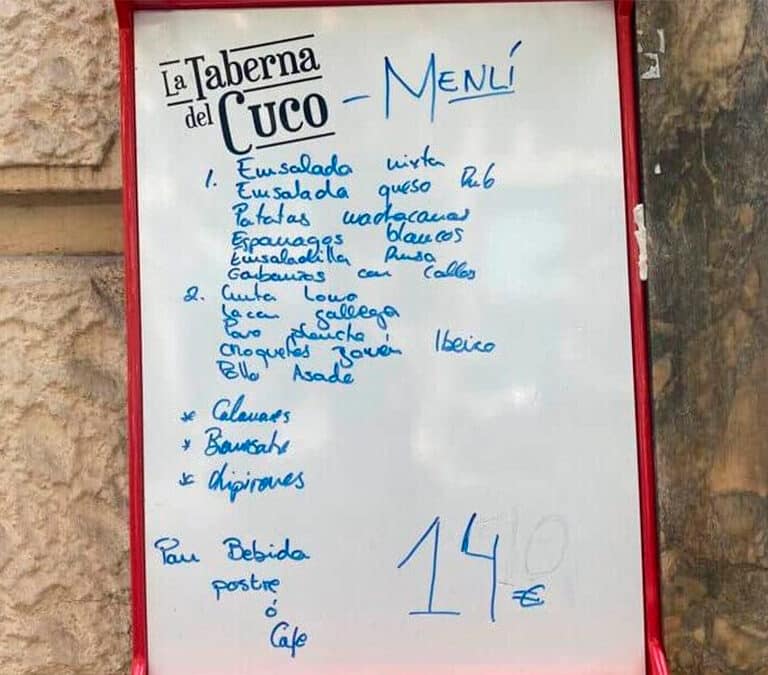 La Taberna del Cuco - MENÚ
1. Ensalada mixta
Ensalada queso Rub
Patatas
Esparragos blancos
Ensaladilla Rusa
Garbanzos con Callos
2. Cinta Lomo
Lacon gallega
Pavo plancha
Croquetas Jamón Iberico
Pollo Asado
* Calamares
*
* Chipirones
Pan Bebida
postre
ó
Cafe
14 €